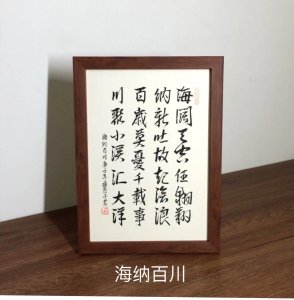 海阔天空任翱翔
纳新吐故起沧浪
百歲莫憂千載事
川聚小溪汇大洋
海纳百川
海纳百川